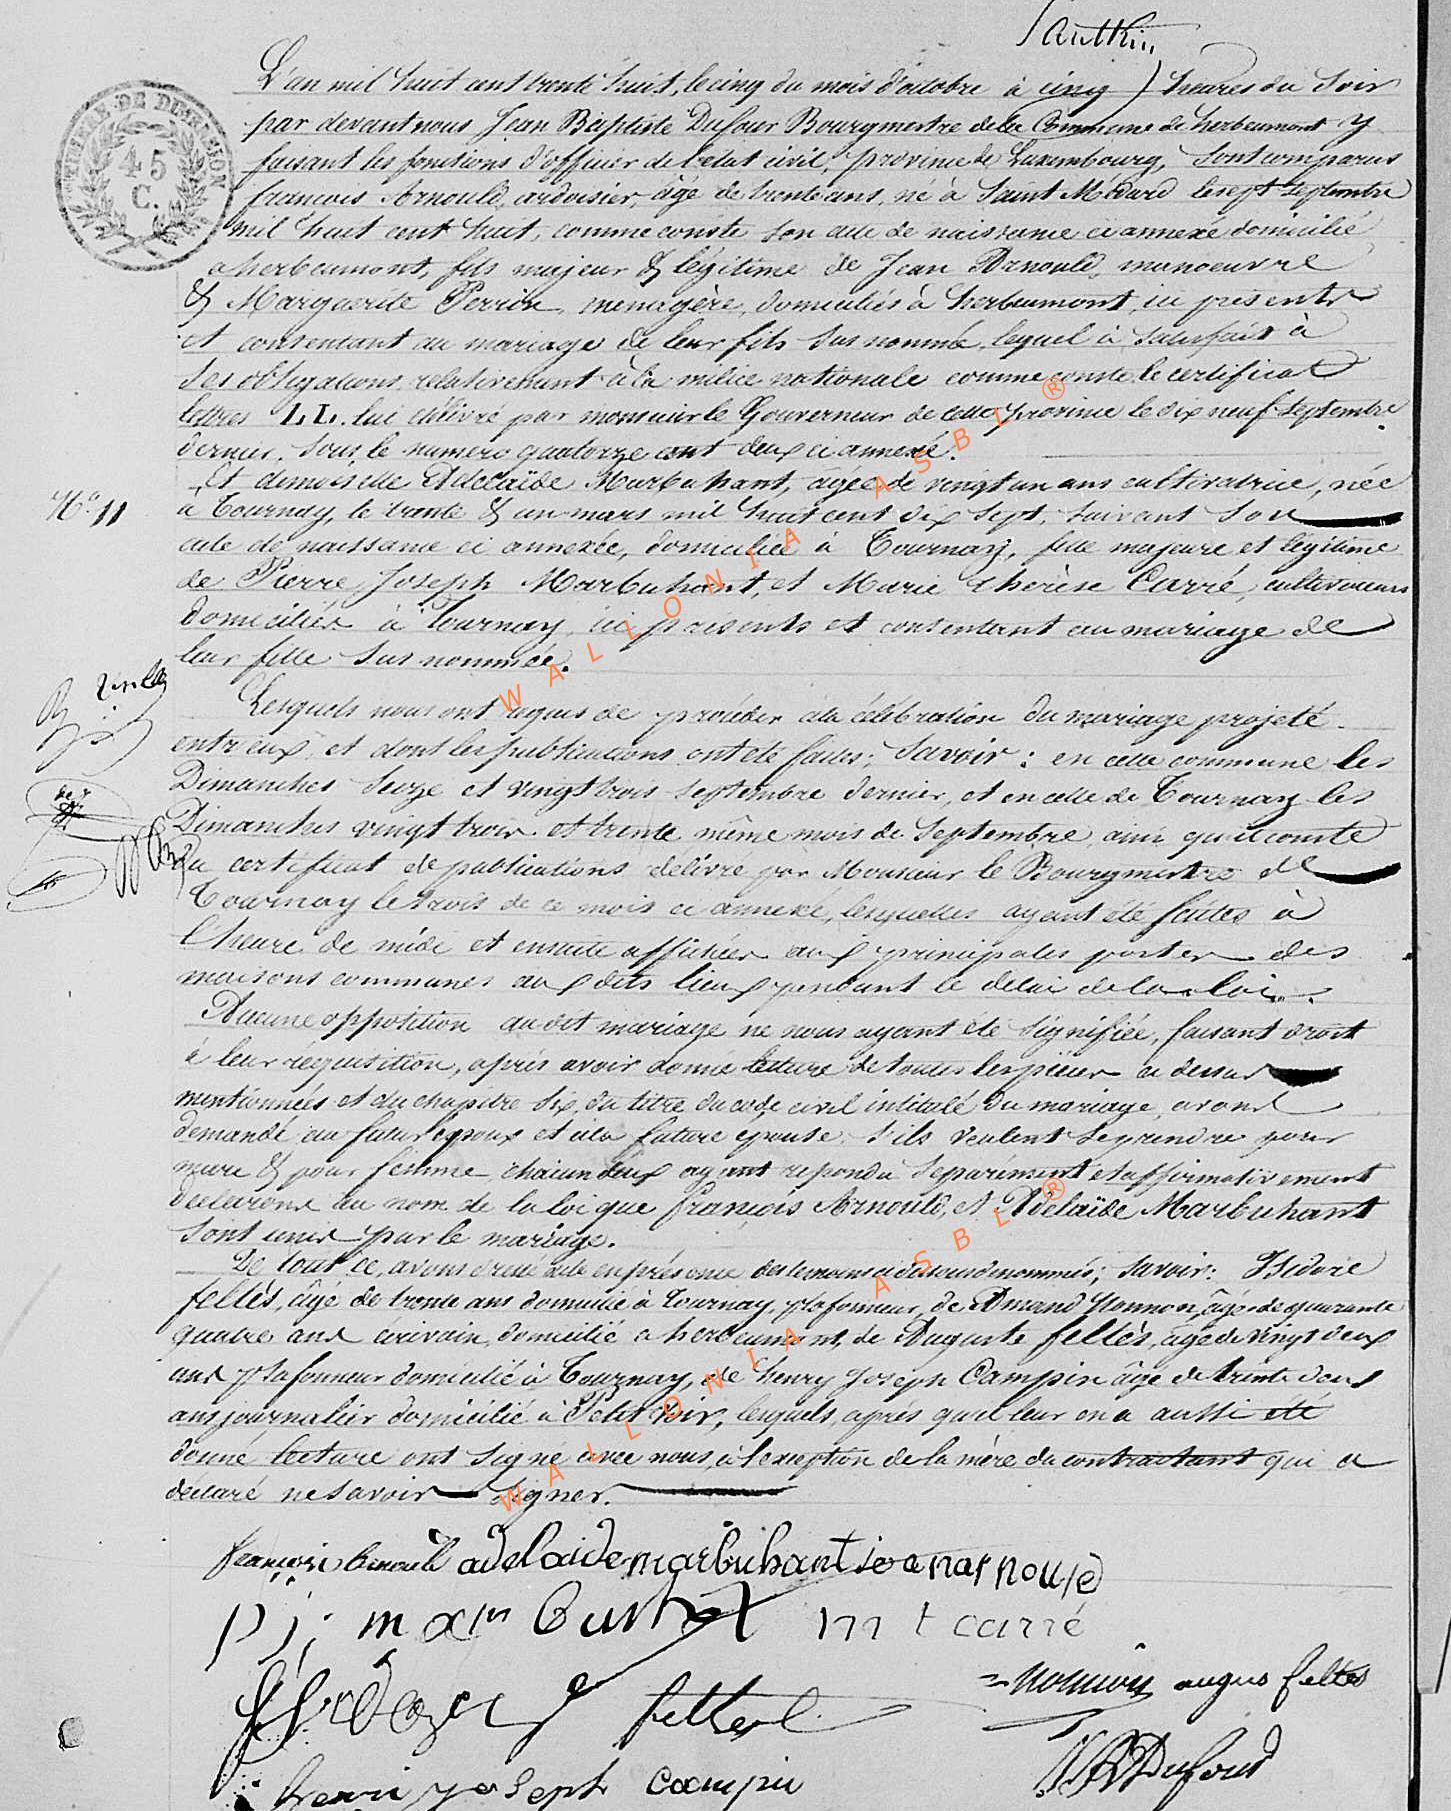 L'an mil huit cent trente huit, le cinq du mois d'octobre à cinq heures du soir
par devant nous Jean Baptiste Dufour Bourgmestre de la Commune de herbeumont y
faisant les fonctions d'officier de l'état civil, province de Luxembourg, sont comparus
françois Arnould, ardoisier, âgé de trente ans, né à Saint Médard le sept septembre
mil huit cent huit, comme conste son acte de naissance ci annexé domicilié
a herbeumont, fils majeur & légitime de Jean Arnould, manoeuvre
& Marguerite Perrin, menagère, domiciliés à herbeumont, ici présents
et consentant au mariage de leur fils sus nommé, lequel à satisfait à
ses obligations relativement à la milice nationale comme conste le certificat
lettres LL. lui délivré par monsieur le Gouverneur de cette province le dix neuf septembre
dernier, sous le numero quatorze cent deux ci annexé.
Et demoiselle Adelaïde Marbuhant, âgée de vingt un ans cultivatrice, née
N.º 11
à Tournay, le trente & un mars mil huit cent dix sept, suivant son
acte de naissance ci annexée, domiciliée à Tournay, fille majeure et légitime
de Pierre Joseph Marbuhant, et Marie thérèse Carré, cultivateurs
domiciliés à Tournay, ici présents et consentant au mariage de
leur fille sus nommée.
Lesquels nous ont requis de procéder à la célébration du mariage projeté
entr'eux, et dont les publications ont été faites; Savoir: en cette commune les
Dimanches seize et vingt trois septembre dernier, et en celle de Tournay les
Dimanches vingt trois et trente même mois de Septembre, ainsi qu'il conste
au certificat de publications délivré par Monsieur le Bourgmestre de
Tournay le trois de ce mois ci annexé, lesquelles ayant été faites à
l'heure de midi et ensuite affichées aux principales portes des
maisons communes aux dits lieux pendant le délai de la loi.
Aucune opposition au dit mariage ne nous ayant été signifiée, faisant droit
à leur réquisition, après avoir donné lecture de toutes les pièces ci dessus
mentionnées et du chapitre six, du titre du code civil intitulé du mariage, avons
demandé au futur epoux et à la future epouse s'ils veulent se prendre pour
mari & pour femme, chacun d'eux ayant repondu separément et affirmativement
declarons au nom de la loi que françois Arnould, et Adelaïde Marbuhant
sont unis par le mariage.
De tout ce, avons dressé acte en présence des temoins ci dessous denommés; savoir: Isidore
feltès, âgé de trente ans domicilié à Tournay, plafonneur, de Amand Nonnon, âgé de quarante
quatre ans écrivain, domicilié a herbeumont, de Auguste feltès, âgé de vingt deux
ans plafonneur domicilié à Tournay, de henry Joseph Campin âgé de trente deux
ans journalier domicilié à Petit Voir, lesquels, après qu'il leur en a aussi été
donné lecture ont signé avec nous, à l'exception de la mère du contractant qui a
déclaré ne savoir signer.
françois arnould adelaidemarbuhant jeanarnould
pj marbuhant m t carré
feltes nonnon augus feltes
henri yoseph campin Dufour
TIMBRE DE DIMENSION
45
C.
WALLONIA ASBL ®
WALLONIA ASBL ®